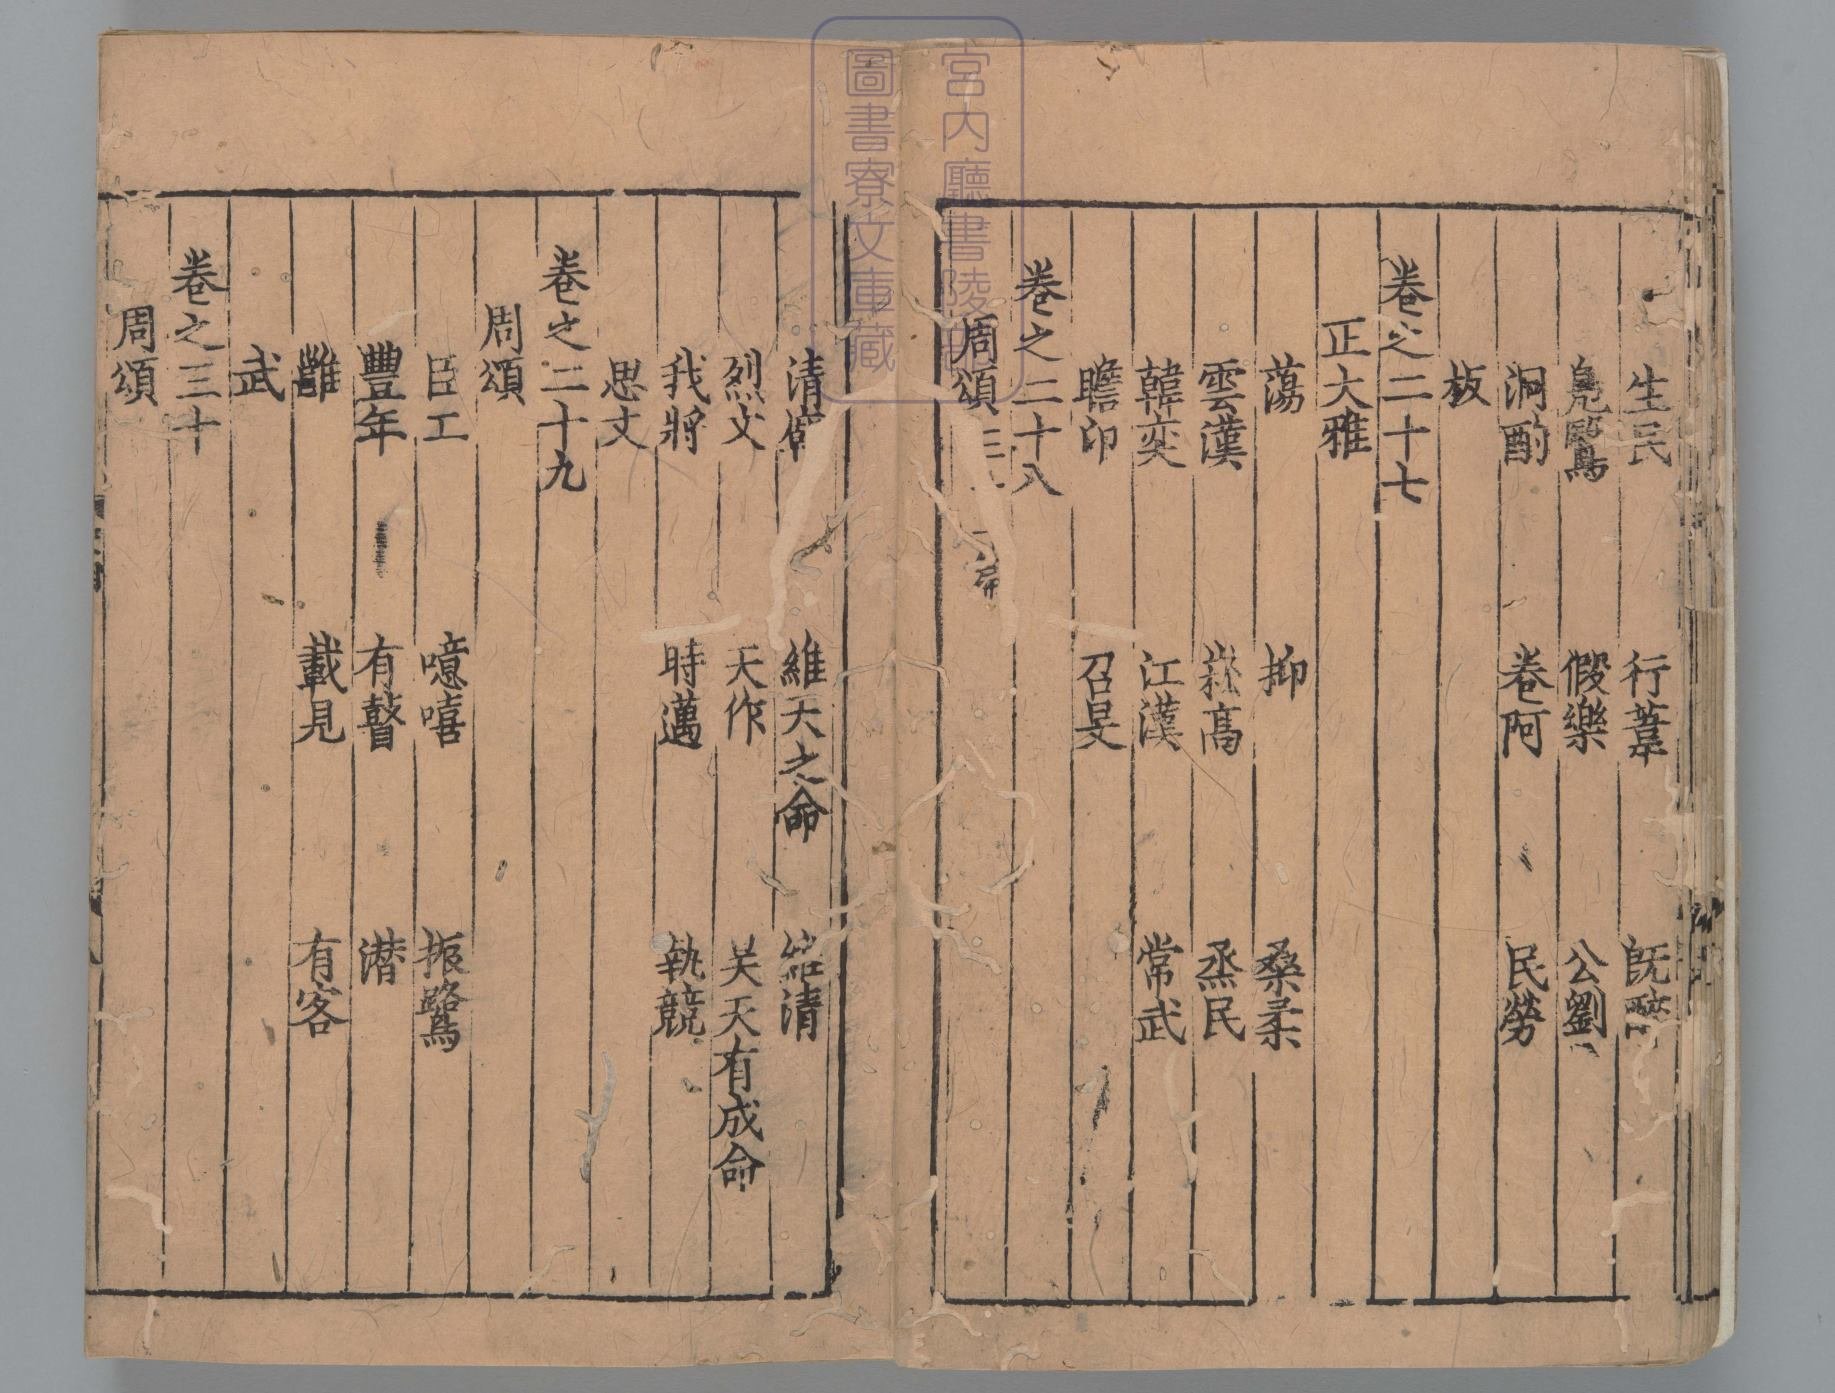 生民 行葦 既醉
鳬鷖 假樂 公劉
泂酌 卷阿 民勞
板
卷之二十七
正大雅
蕩 抑 桑柔
雲漢 崧高 烝民
韓奕 江漢 常武
瞻卬 召旻
卷之二十八
周頌
清廟 維天之命 維清
烈文 天作 昊天有成命
我將 時邁 執競
思文
卷之二十九
周頌
臣工 噫嘻 振鷺
豐年 有瞽 潛
雝 載見 有客
武
卷之三十
周頌
宮内廳書陵部
圖書寮文庫藏